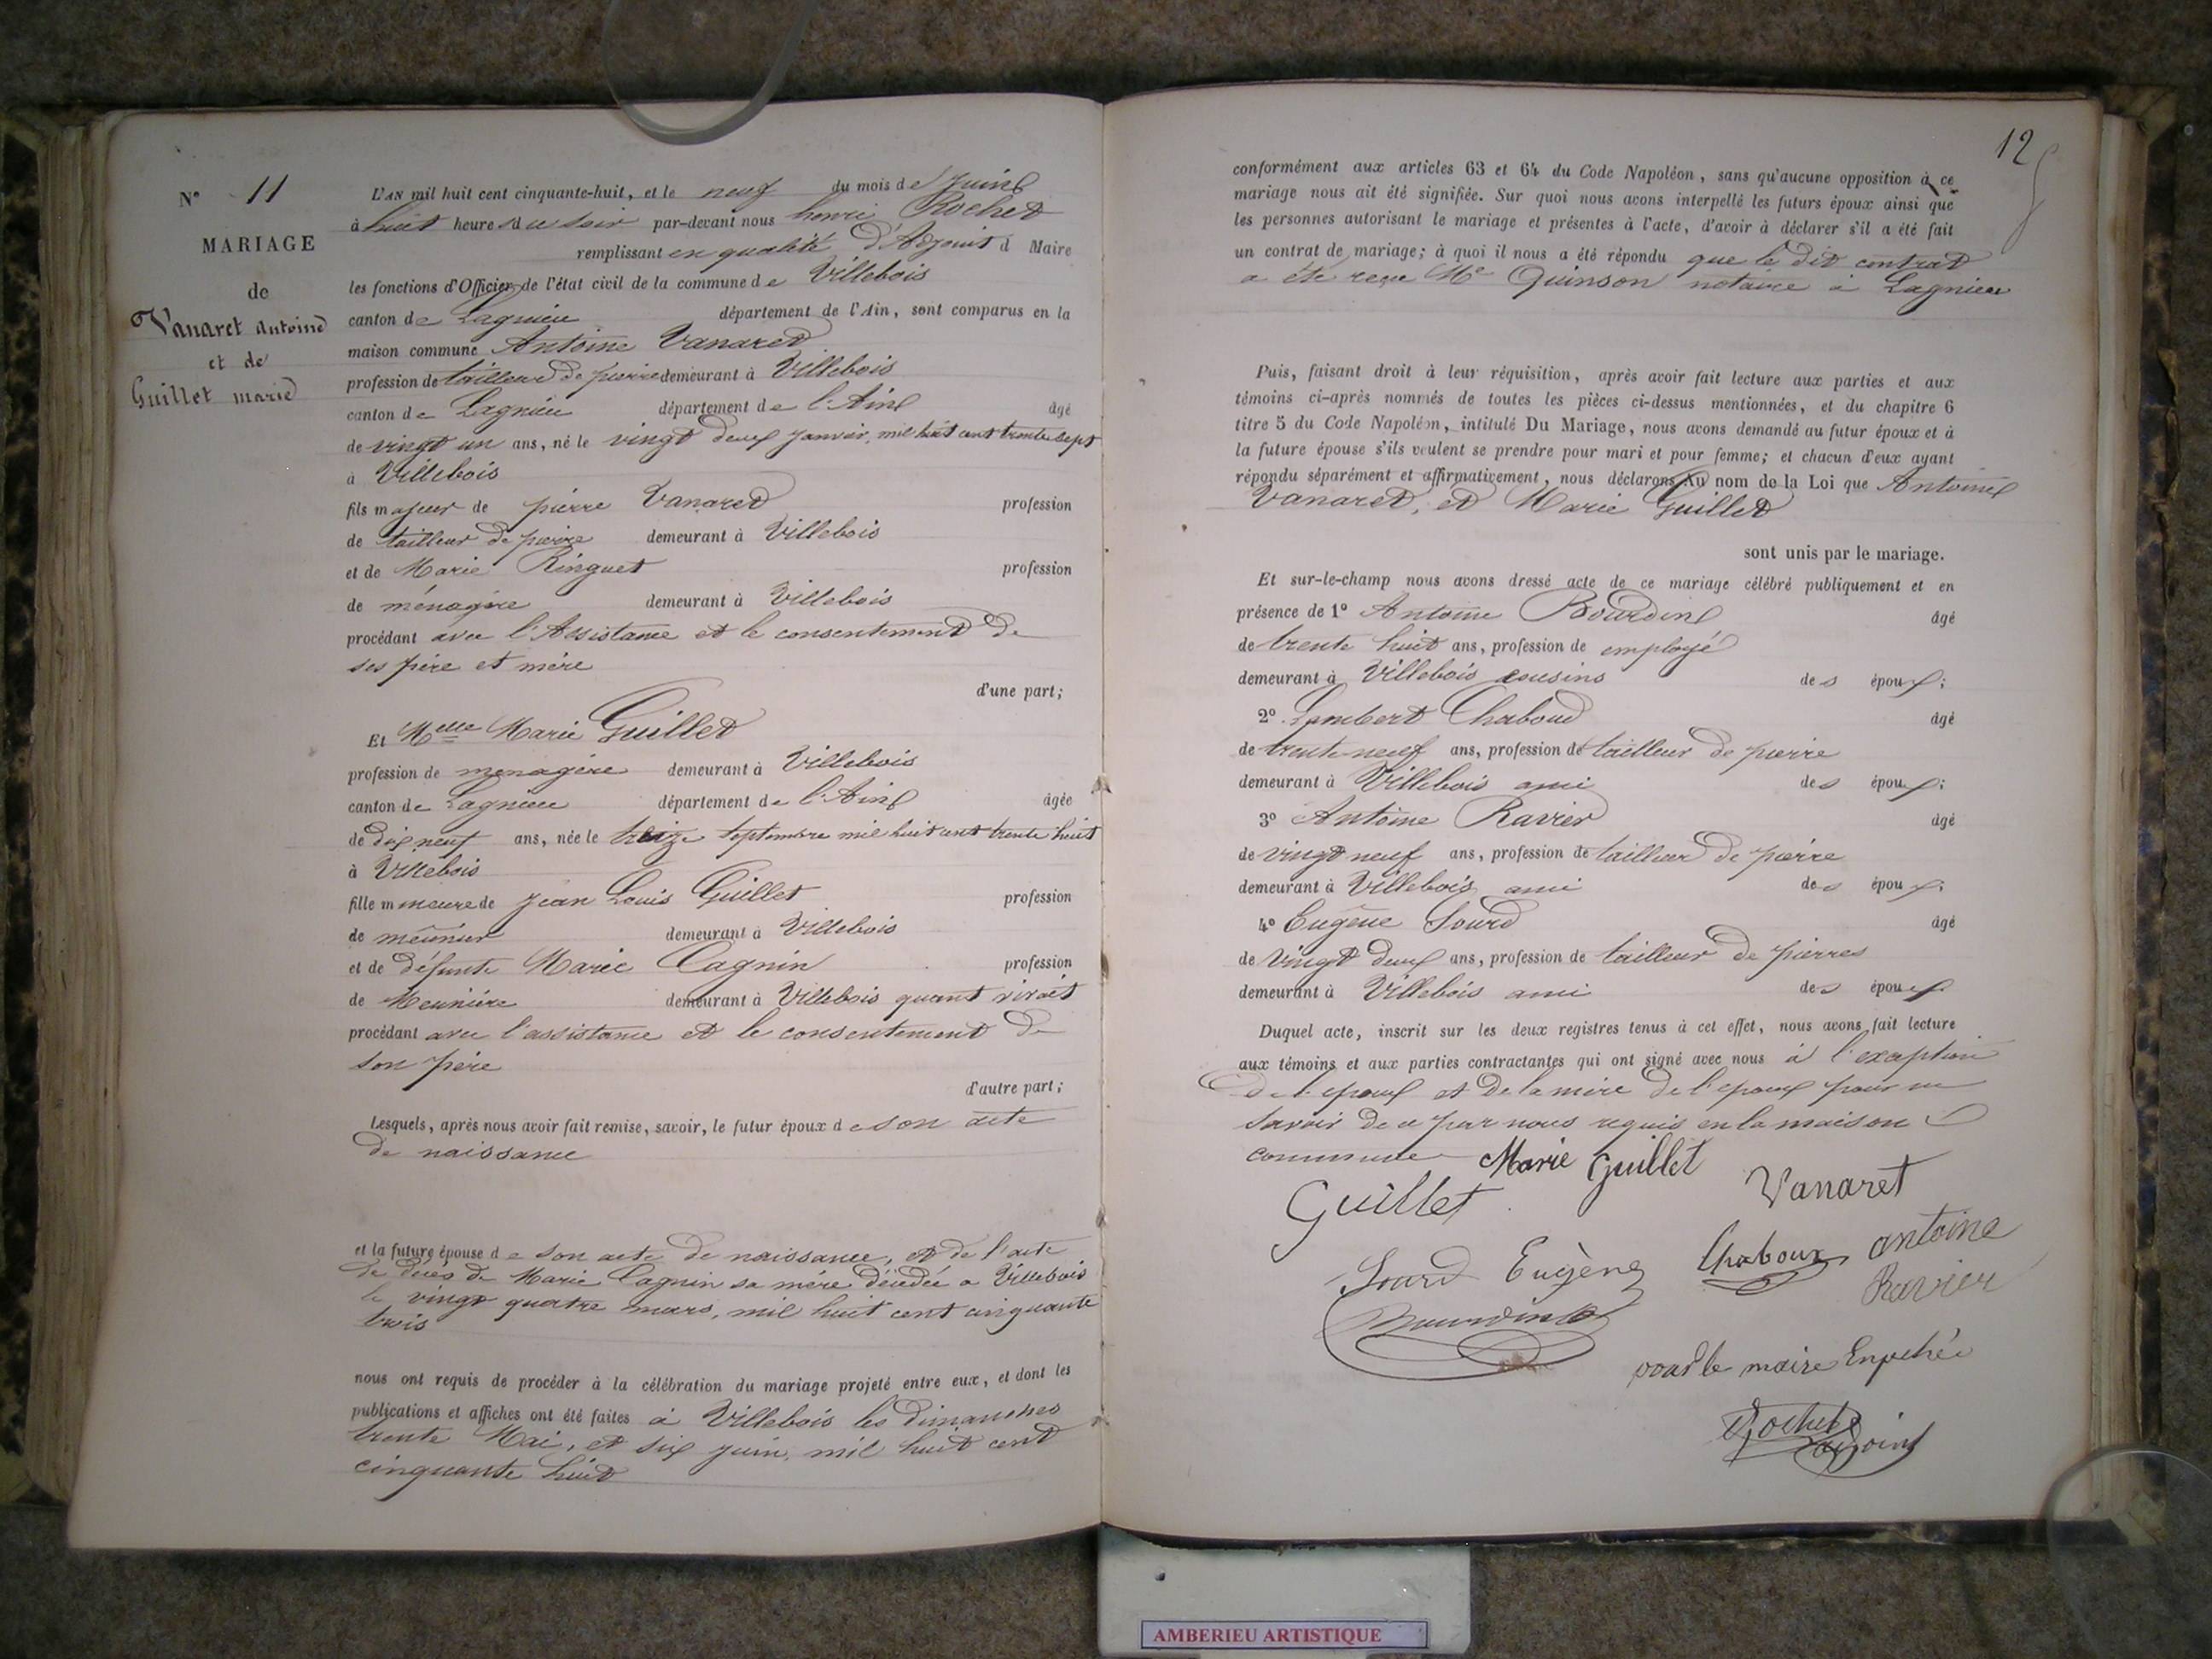 N° 11
MARIAGE
de
Vanaret Antoine
et de
Guillet marie
L'AN mil huit cent cinquante-huit, et le neuf du mois de Juin
à huit heures du soir par-devant nous henri Rochet
remplissant en qualité d'Adjoint d Maire
les fonctions d'Officier de l'état civil de la commune de Villebois
canton de Lagnieu département de l'Ain, sont comparus en la
maison commune Antoine Vanaret
profession de tailleur de pierre demeurant à Villebois
canton de Lagnieu département de l'Ain âgé
de vingt un ans, né le vingt deux janvier, mil huit cent trente sept
à Villebois
fils majeur de pierre Vanaret profession
de tailleur de pierre demeurant à Villebois
et de Marie Ringuet profession
de ménagère demeurant à Villebois
procédant avec l'Assistance et le consentement de
ses père et mère
d'une part;
Et Melle Marie Guillet
profession de menagère demeurant à Villebois
canton de Lagnieu département de l'Ain âgée
de dix neuf ans, née le treize septembre mil huit cent trente huit
à Villebois
fille mineure de Jean Louis Guillet profession
de meunier demeurant à Villebois
et de défunte Marie Cagnin profession
de Meunière demeurant à Villebois quant vivait
procédant avec l'assistance et le consentement de
son père
d'autre part;
Lesquels, après nous avoir fait remise, savoir, le futur époux de son acte
de naissance
et la future épouse de son acte de naissance, et de l'acte
de décès de Marie Cagnin sa mère décédée a Villebois
le vingt quatre mars, mil huit cent cinquante
trois
nous ont requis de procéder à la célébration du mariage projeté entre eux, et dont les
publications et affiches ont été faites à Villebois les dimanches
trente Mai, et six juin, mil huit cent
cinquante huit
12
conformément aux articles 63 et 64 du Code Napoléon, sans qu'aucune opposition à ce
mariage nous ait été signifiée. Sur quoi nous avons interpellé les futurs époux ainsi que
les personnes autorisant le mariage et présentes à l'acte, d'avoir à déclarer s'il a été fait
un contrat de mariage; à quoi il nous a été répondu que le dit contrat
a été reçu Me Quinson notaire à Lagnieu
Puis, faisant droit à leur réquisition, après avoir fait lecture aux parties et aux
témoins ci-après nommés de toutes les pièces ci-dessus mentionnées, et du chapitre 6
titre 5 du Code Napoléon, intitulé Du Mariage, nous avons demandé au futur époux et à
la future épouse s'ils veulent se prendre pour mari et pour femme; et chacun d'eux ayant
répondu séparément et affirmativement, nous déclarons Au nom de la Loi que Antoine
Vanaret, et Marie Guillet
sont unis par le mariage.
Et sur-le-champ nous avons dressé acte de ce mariage célébré publiquement et en
présence de 1° Antoine Bourdin âgé
de trente huit ans, profession de employé
demeurant à Villebois cousins des époux;
2° Lambert Chaboud âgé
de trente neuf ans, profession de tailleur de pierre
demeurant à Villebois ami des époux;
3° Antoine Ravier âgé
de vingt neuf ans, profession de tailleur de pierre
demeurant à Villebois ami des époux;
4° Eugène Sourd âgé
de vingt deux ans, profession de tailleur de pierres
demeurant à Villebois ami des époux
Duquel acte, inscrit sur les deux registres tenus à cet effet, nous avons fait lecture
aux témoins et aux parties contractantes qui ont signé avec nous à l'exception
de l'epoux et de la mère de l'epoux pour ne
savoir de ce par nous requis en la maison
commune Marie Guillet
Guillet Vanaret
Sourd Eugène Chaboux antoine
Ravier
Bourdin
pour le maire Enpéché
Rochet
adjoint
AMBERIEU ARTISTIQUE